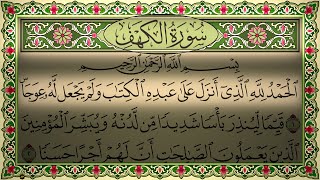 سورة الكهف
بسم الله الرحمن الرحيم
الحمد لله الذي أنزل على عبده الكتب ولم يجعل له عوجا
قيما لينذر بأسا شديدا من لدنه ويبشر المؤمنين
الذين يعملون الصلحت أن لهم أجرا حسنا